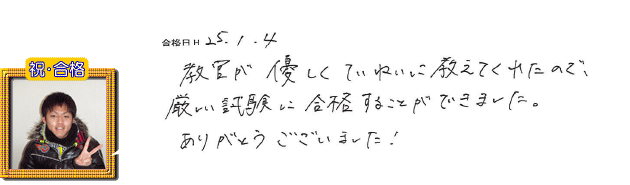 合格日H 25.1.4
祝・合格
教官が優しくていねいに教えてくれたので、
厳しい試験に合格することができました。
ありがとうございました!